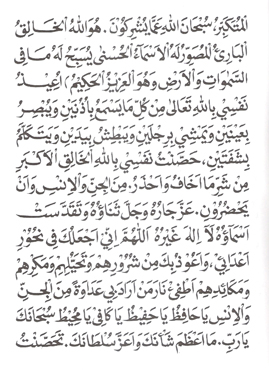 الْمُتَكَبِّرُ سُبْحَانَ اللهِ عَمَّا يُشْرِكُونَ . هُوَ اللهُ الْخَالِقُ
الْبَارِئُ الْمُصَوِّرُ لَهُ الْاَسْمَاءُ الْحُسْنٰى يُسَبِّحُ لَهُ مَا فِى
السَّمٰوَاتِ وَالْاَرْضِ وَهُوَ الْعَزِيْزُ الْحَكِيْمُ / اُعِيْذُ
نَفْسِيْ بِاللهِ تَعَالٰى مِنْ كُلِّ مَا يَسْمَعُ بِاُذُنَيْنِ وَيُبْصِرُ
بِعَيْنَيْنِ وَيَمْشِيْ بِرِجْلَيْنِ وَيَبْطِشُ بِيَدَيْنِ وَيَتَكَلَّمُ
بِشَفَتَيْنِ ، حَصَّنْتُ نَفْسِيْ بِاللهِ الْخَالِقِ الْاَكْبَرِ
مِنْ شَرِّ مَا اَخَافُ وَاَحْذَرُ . مِنَ الْجِنِّ وَالْاِنْسِ وَاَنْ
يَحْضُرُوْنِ . عَزَّ جَارُهُ وَجَلَّ ثَنَاؤُهُ وَتَقَدَّسَتْ
اَسْمَاؤُهُ لَا اِلٰهَ غَيْرُهُ اَللّٰهُمَّ اِنِّى اَجْعَلُكَ فِى نُحُوْرِ
اَعْدَائِيْ ، وَاَعُوْذُ بِكَ مِنْ شُرُوْرِهِمْ وَتَحَيُّلِهِمْ وَمَكْرِهِمْ
وَمَكَائِدِهِمْ اَطْفِئْ نَارَ مَنْ اَرَادَ بِيْ عَدَاوَةً مِنَ الْجِنِّ
وَالْاِنْسِ يَا حَافِظُ يَا حَفِيْظُ يَا كَافِيْ يَا مُحِيْطُ سُبْحَانَكَ
يَا رَبِّ . مَا اَعْظَمَ شَأْنَكَ وَاَعَزَّ سُلْطَانَكَ . تَحَصَّنْتُ